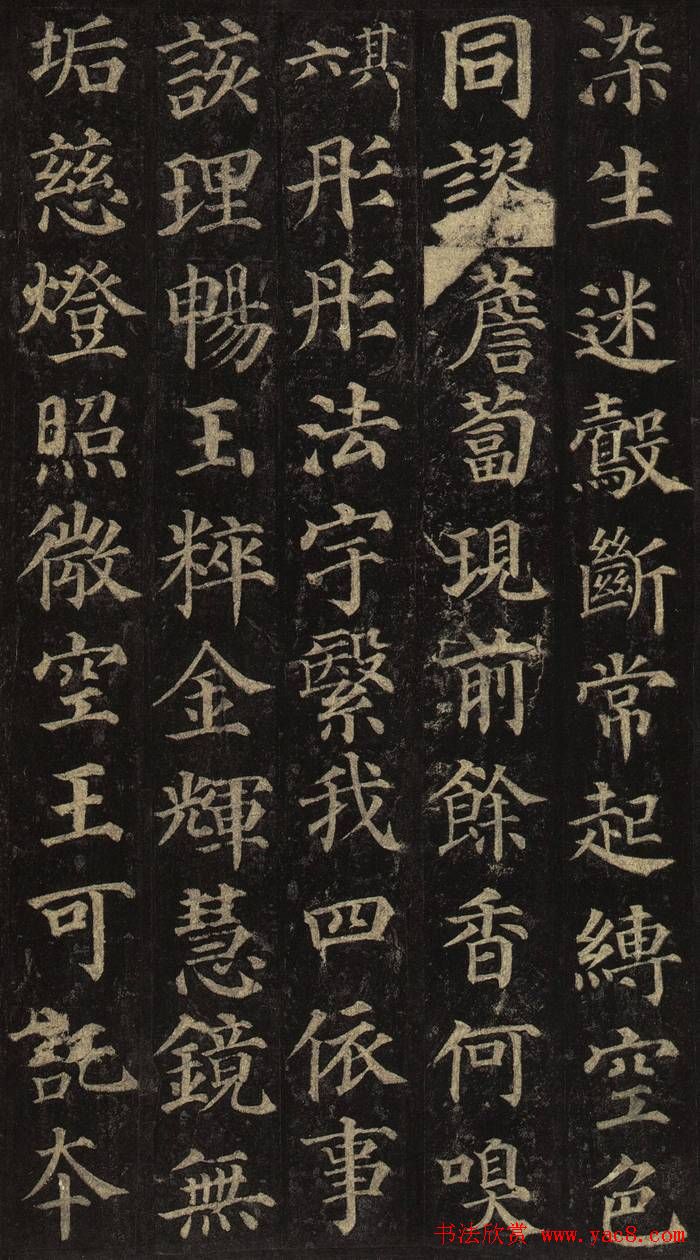 染生迷鷇斷常起縛空色
同謬薝蔔現前餘香何嗅
其六彤彤法宇繄我四依事
該理暢玉粹金輝慧鏡無
垢慈燈照微空王可託夲
书法欣赏 www.yac8.com